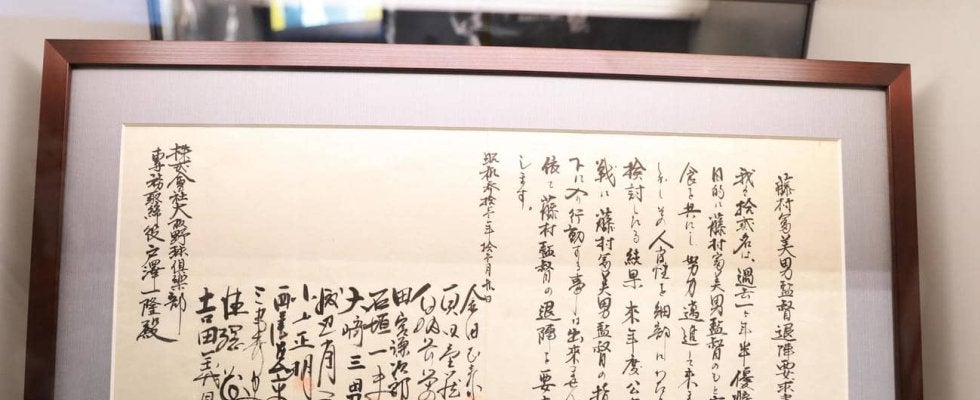 藤村富美男監督退陣要求書
我々拾弐名は、過去一ヶ年半優勝
目的に藤村富美男監督のもと
食を共にし努力邁進して来
しかしその人間性を細部にわた
検討したる結果 来年度公
戦に藤村富美男監督の指
下に入り行動する事は出来ません
依て藤村監督の退陣を要
します。
昭和参拾壱年拾
金田正泰
真田重蔵
田宮謙次郎
石垣一夫
大崎三男
渡辺省
小山正明
三宅秀
吉田義男
株式會社大阪野球倶楽部
専務取締役戸澤一隆殿